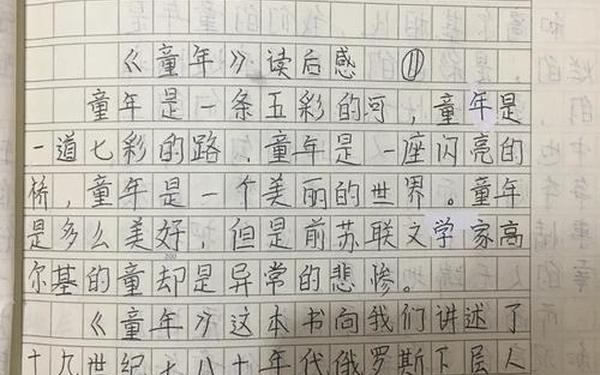 《童年》读后感 ⑪
童年是一条五彩的可，童年是
一道七彩的路，童年是一座闪亮的
桥，童年是一个美丽的世界。童年
是多么美好，但是前苏联文学家高
尔基的童却是异常的悲惨。
200
《童年》这本书向我们讲述了
十九世纪七八十年代俄罗斯下层人